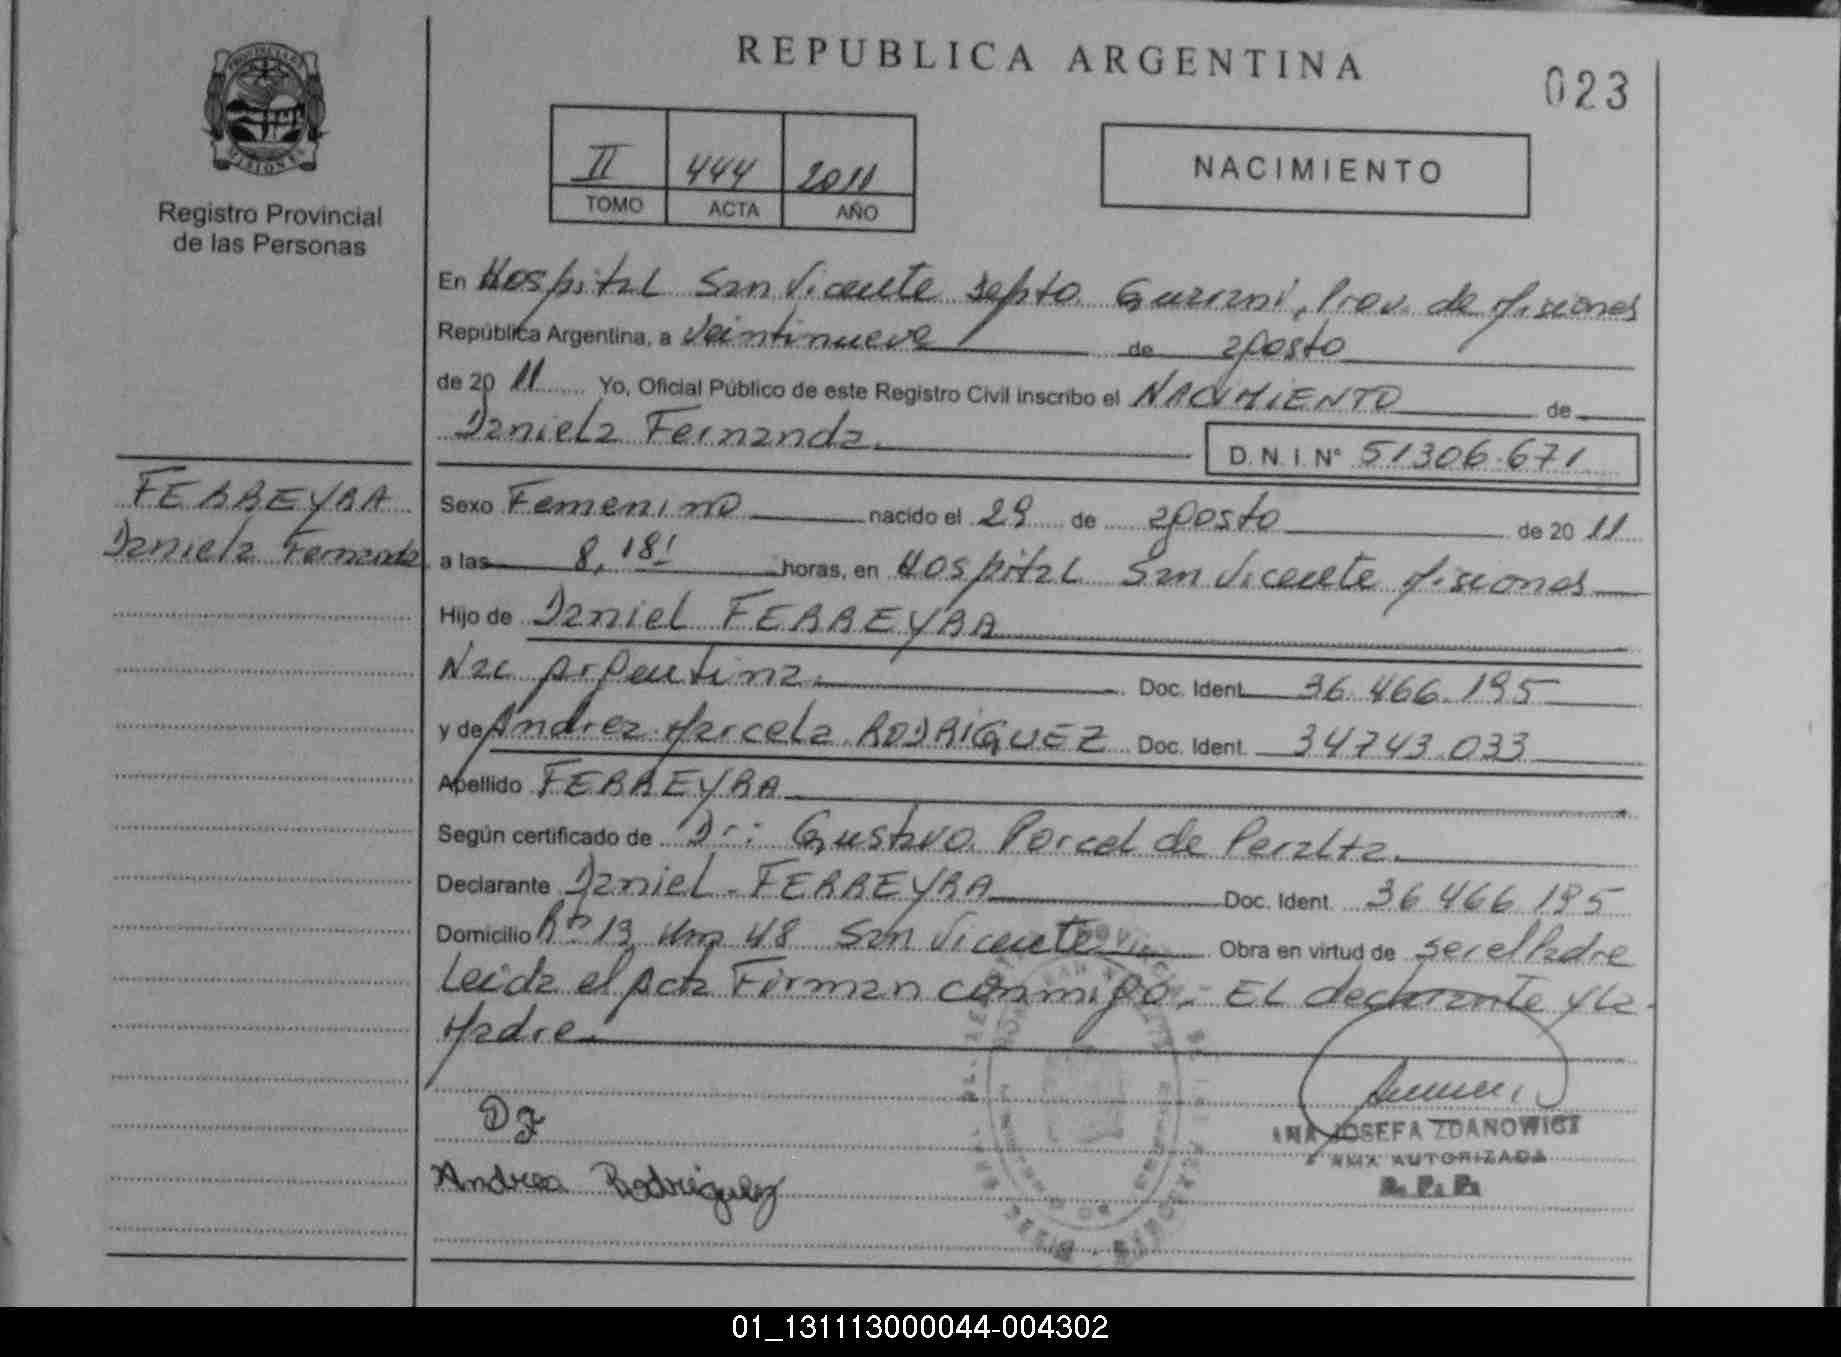 REPUBLICA ARGENTINA
023
PROVINCIA DE
MISIONES
Registro Provincial
de las Personas
II 444 2011
TOMO ACTA AÑO
NACIMIENTO
En Hospital San Vicente Depto Guarani, Prov. de Misiones
República Argentina, a Veintinueve de agosto
de 20 11 Yo, Oficial Público de este Registro Civil inscribo el NACIMIENTO de
Daniela Fernanda.
D.N.I. N° 51306.671
FERREYRA
Daniela Fernanda
Sexo Femenino nacido el 29 de agosto de 20 11
a las 8,18' horas, en Hospital San Vicente Misiones
Hijo de Daniel FERREYRA
Nac Argentina. Doc. Ident. 36.466.195
y de Andrea Marcela RODRIGUEZ Doc. Ident. 34743.033
Apellido FERREYRA
Según certificado de Dr: Gustavo Porcel de Peralta.
Declarante Daniel FERREYRA Doc. Ident. 36 466 195
Domicilio Rta 13 Km 48 San Vicente Obra en virtud de ser el Padre
Leida el Acta Firman conmigo: El declarante y la
Madre
DF
Andrea Rodriguez
ANA JOSEFA ZDANOWICZ
AUX AUTORIZADA
R. P. P.
01_131113000044-004302